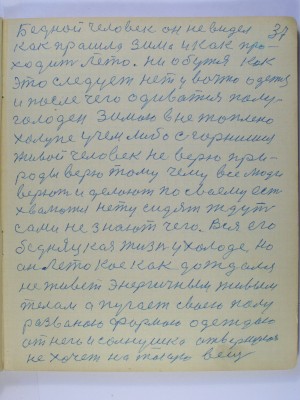 37
Бедной человек он не видел
как прашла зима и как про-
ходит лето. ни обутя как
это следует нет уважно одетя
и после чего одиватия полу-
голоден Зимою в не топлено
халупе учем либо сгорниших
живой человек не верю при-
роды верю тому чему все люди
верют и делают по своему ест-
хваматя нету сидят ждут
сами не знают чего. Вся его
бедняцкая жизнь ухолоде но
он лето кое как дождалия
не живет энергичным живым
телам а пугает своею полу
развано формою одеждою
от него и солнушка отвернулоя
не хочет на такую вещ